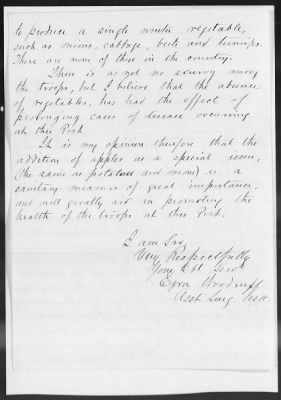 to produce a single winter vegetable,
such as onions, cabbage, beets and turnips.
There are none of these in the country.
There is as yet no scurvy among
the troops, but I believe that the absence
of vegetables, has had the effect of
prolonging cases of disease occurring
at this Post.
It is my opinion therefore that the
addition of apples as a special issue,
(the same as potatoes and onions) is a
sanitary measure of great importance,
and will greatly aid in promoting the
health of the troops at this Post.
I am Sir,
Very Respectfully
Your Obt Servt
Ezra Woodruff
Asst Surg USA.